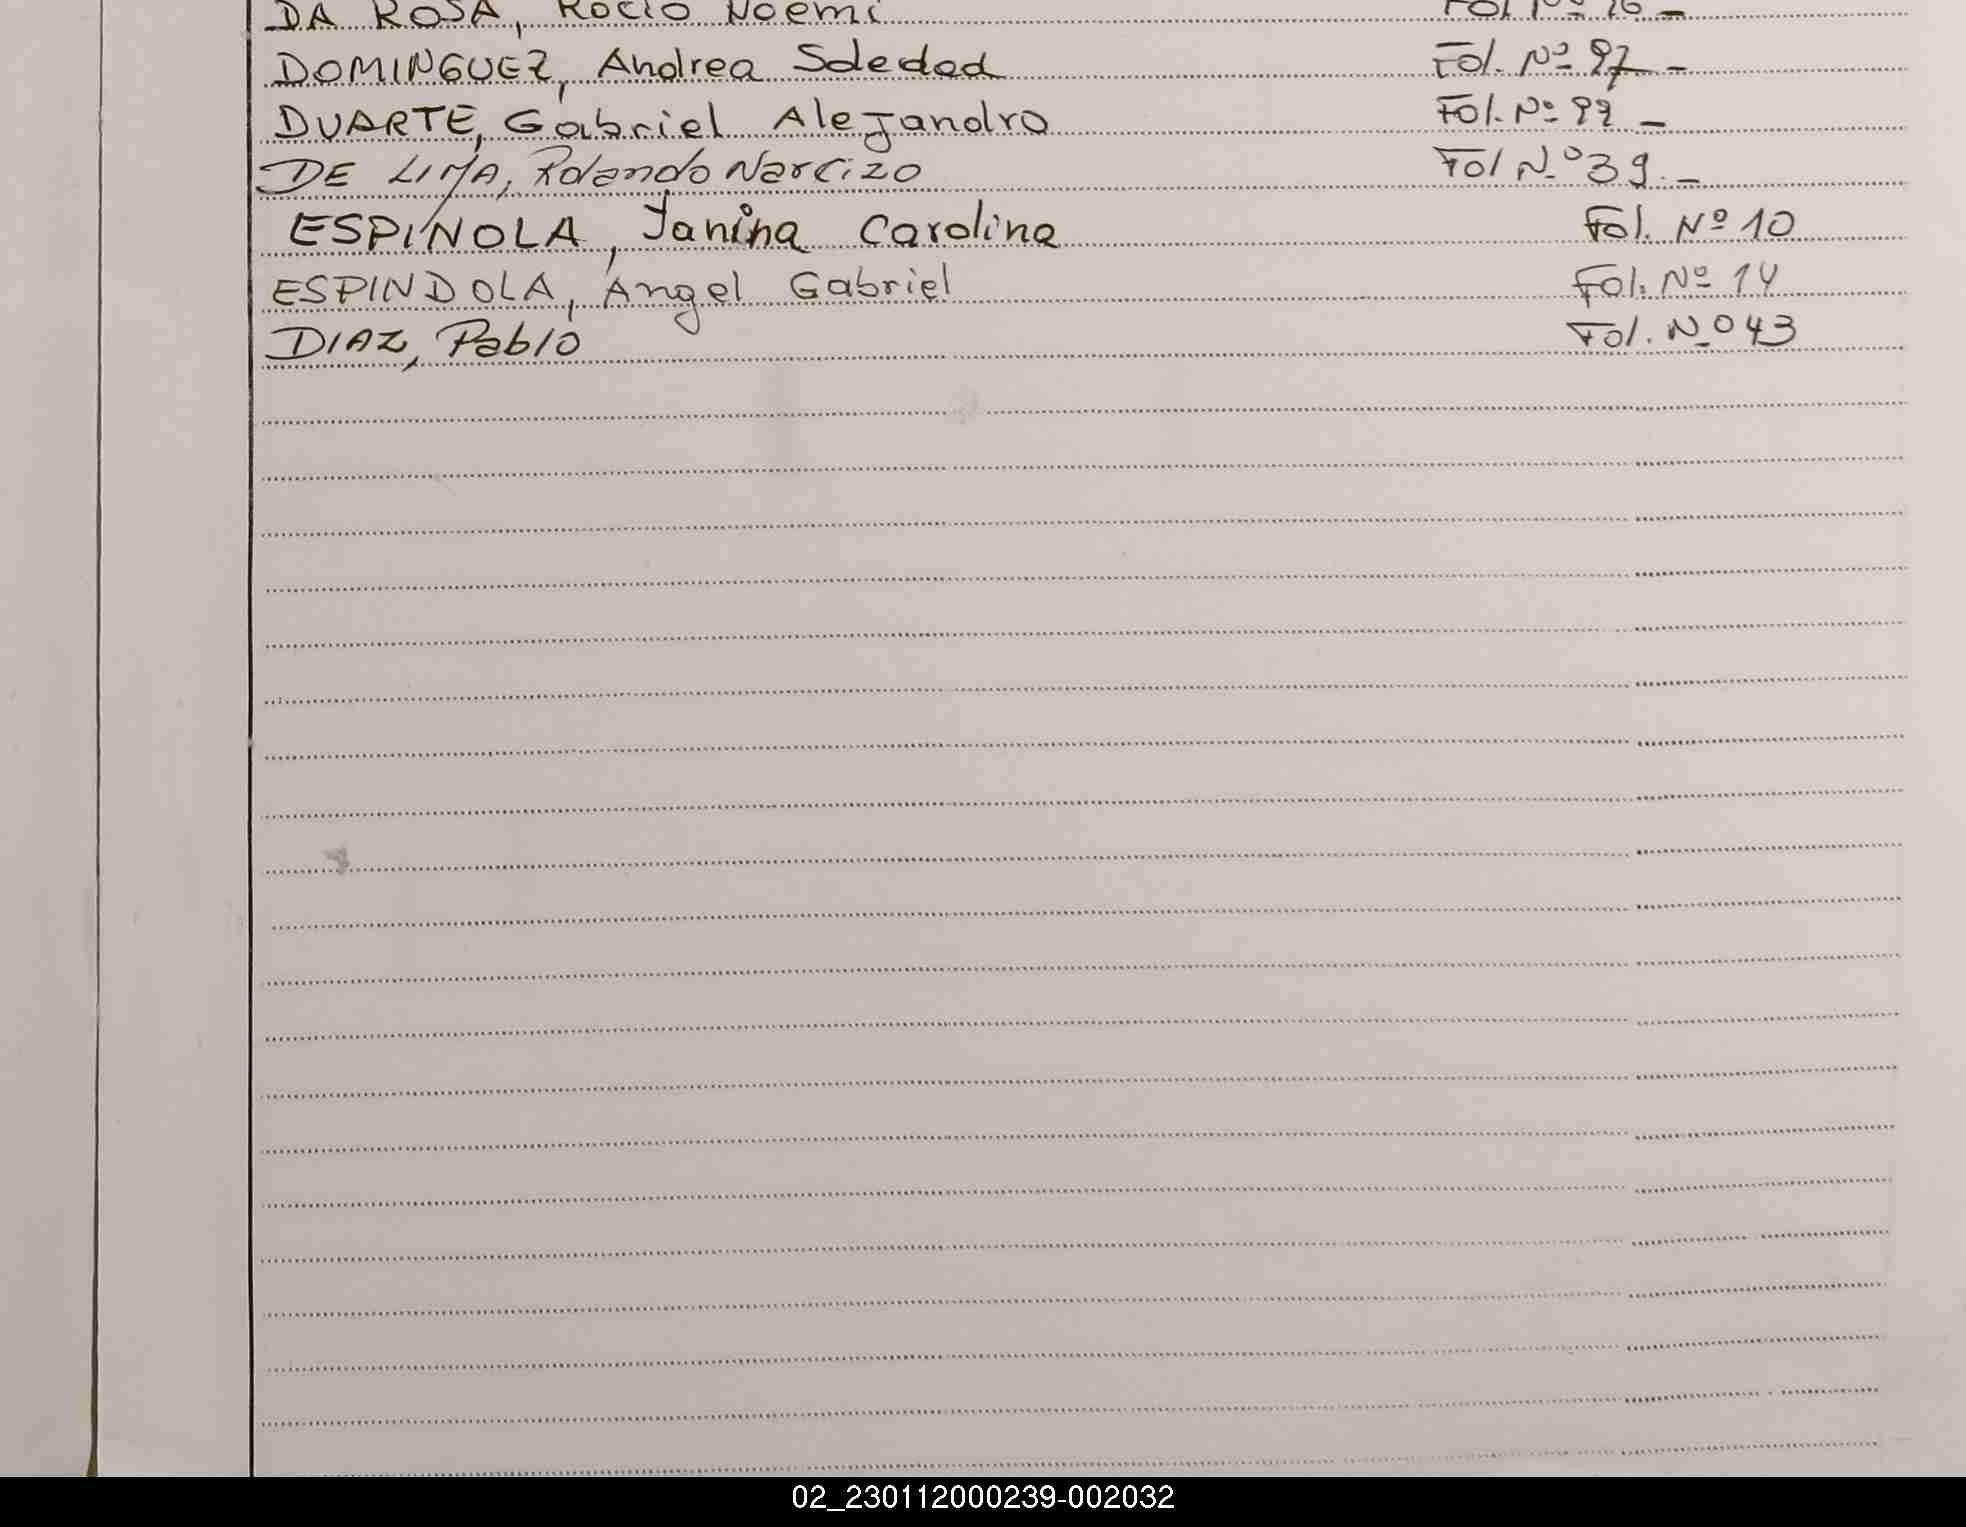 DA ROSA, Rocio Noemi Fol Nº 16 -
DOMINGUEZ, Andrea Soledad Fol. Nº 97 -
DUARTE, Gabriel Alejandro Fol. Nº 99 -
DE LIMA, Rolando Narcizo Fol N.º 39. -
ESPINOLA, Yanina Carolina Fol. Nº 10
ESPINDOLA, Angel Gabriel Fol. Nº 14
DIAZ, Pablo Fol. Nº 43
02_230112000239-002032